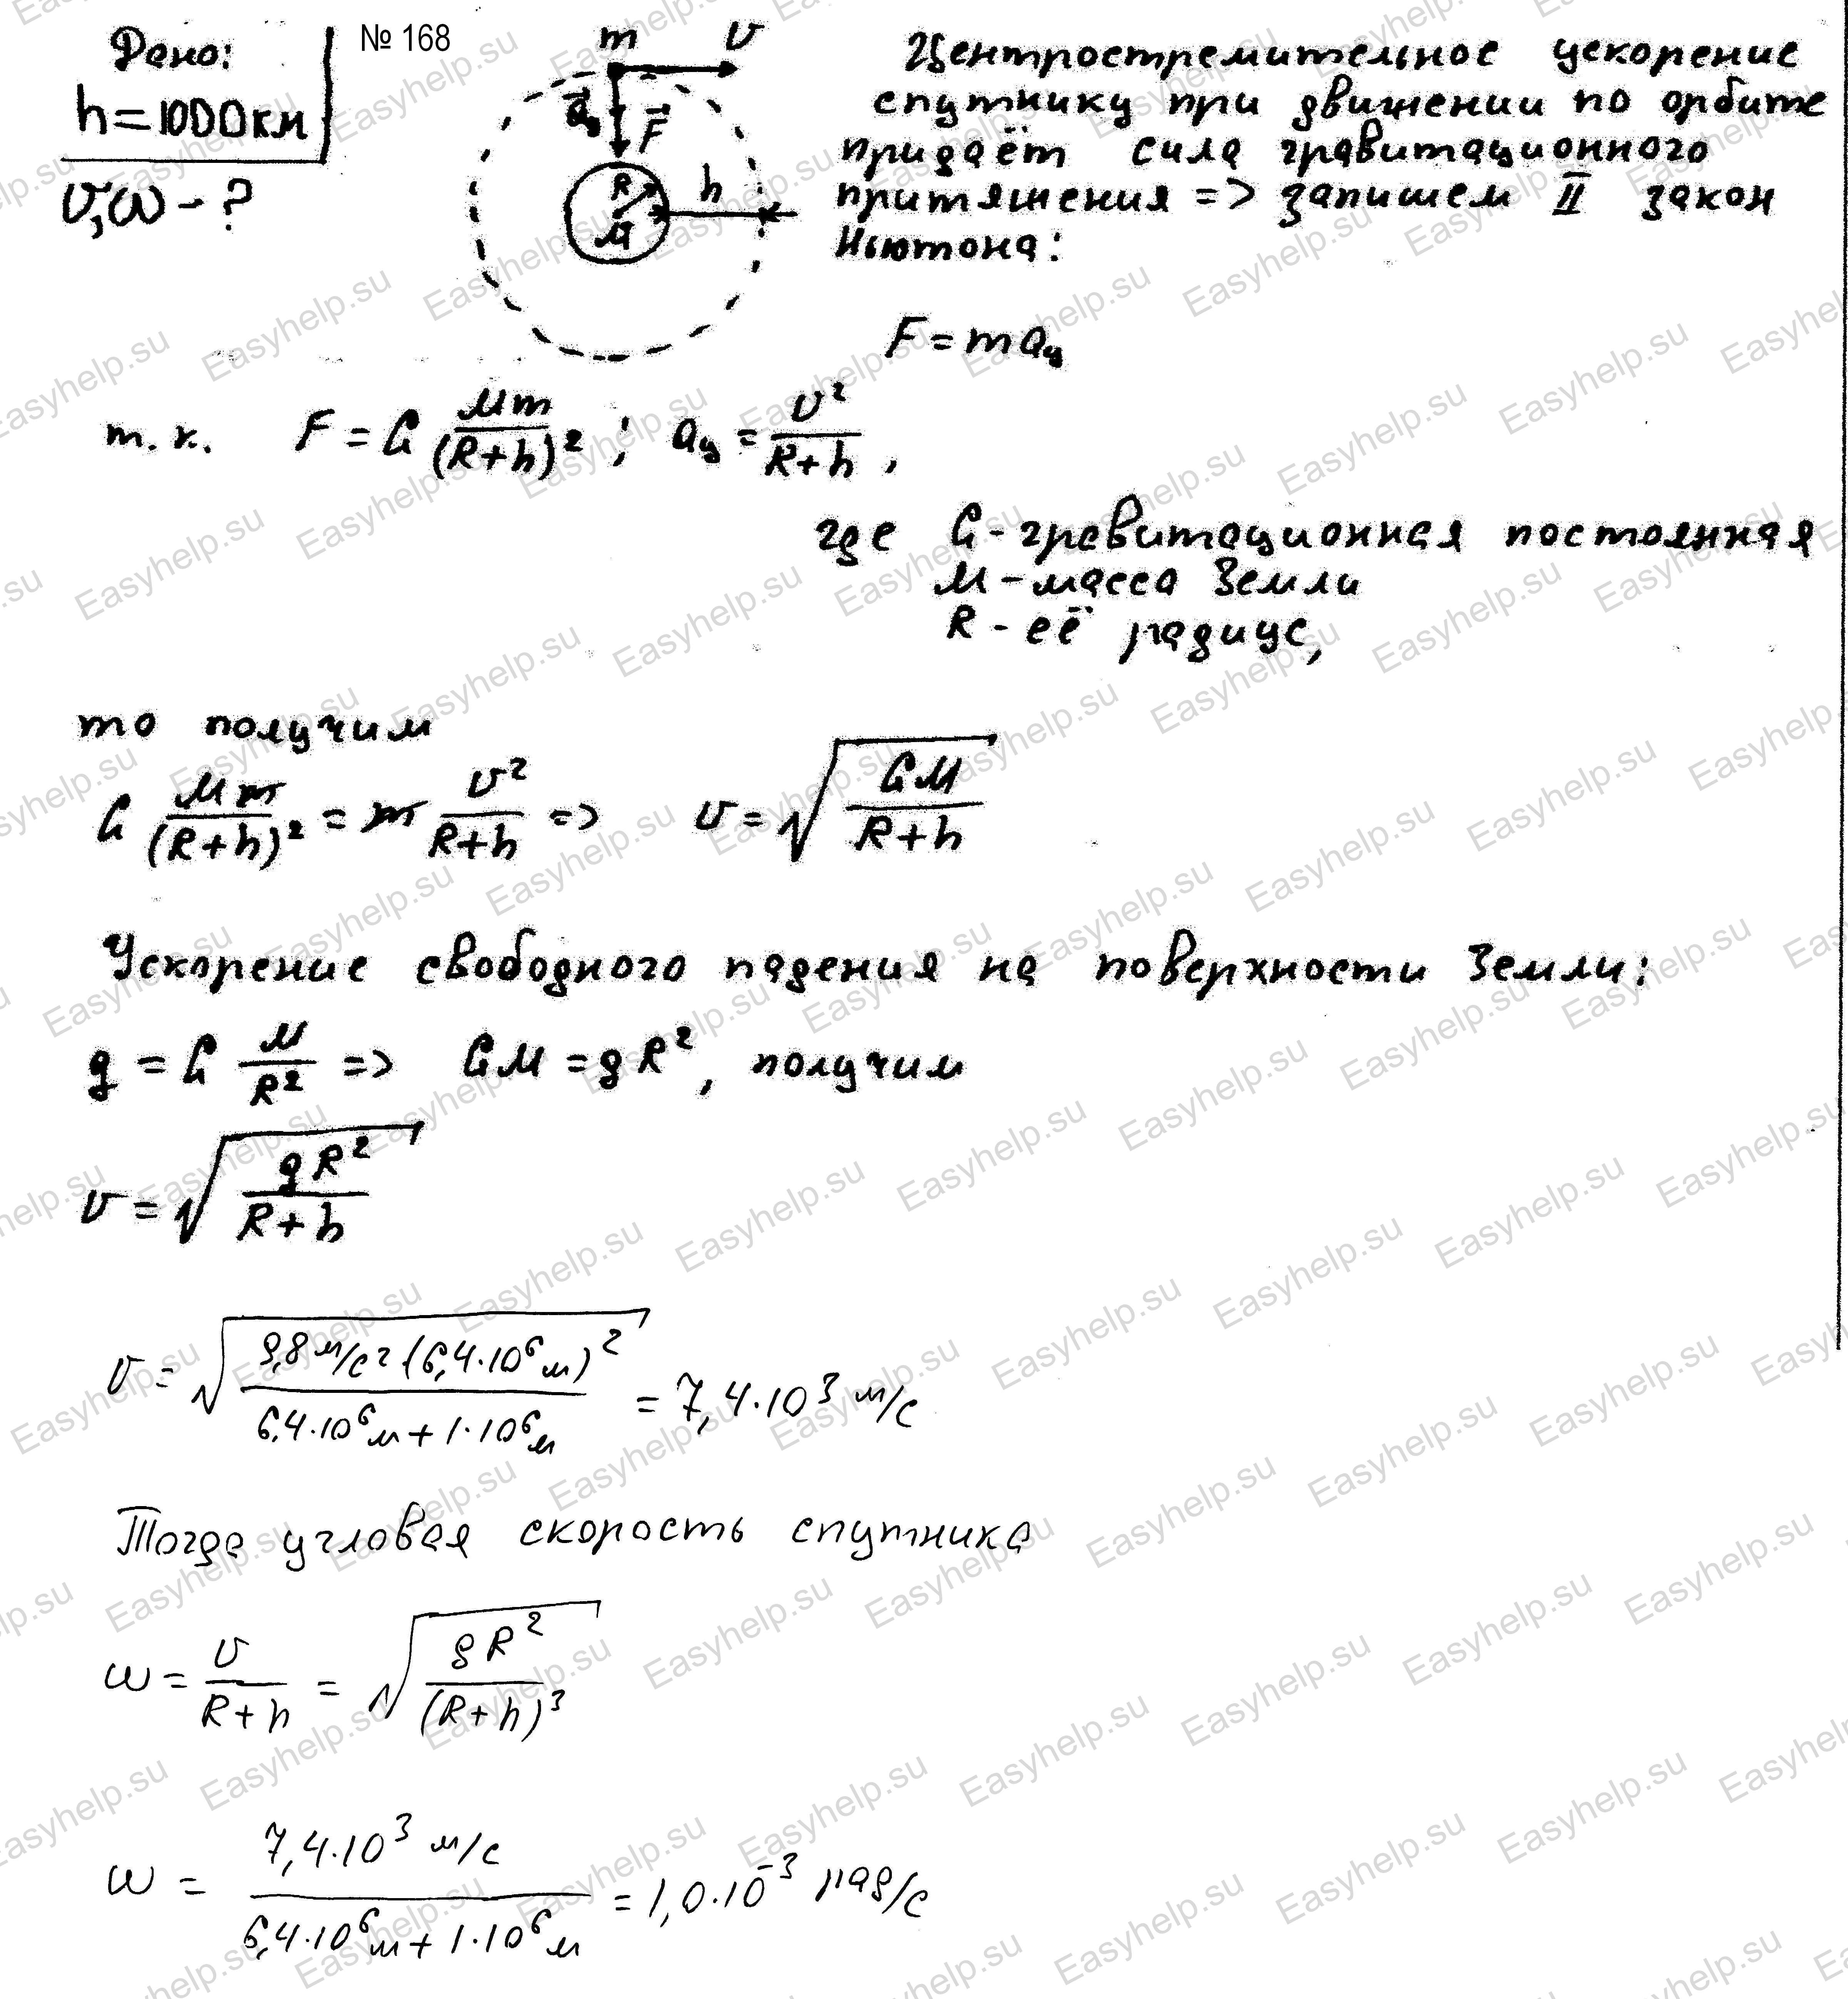 Дано:
№ 168
h=1000км
υ,ω - ?
m υ
a⃗ц F⃗
R h
M
Центростремительное ускорение
спутнику при движении по орбите
придаёт сила гравитационного
притяжения => запишем II закон
Ньютона:
F = maц
т.к. F = G Mm/(R+h)² ; aц = υ²/(R+h) ,
где G - гравитационная постоянная
M - масса Земли
R - её радиус,
то получим
G Mm/(R+h)² = m υ²/(R+h) => υ = √(GM/(R+h))
Ускорение свободного падения на поверхности Земли:
g = G M/R² => GM = gR², получим
υ = √(gR²/(R+h))
υ = √(9,8 м/с² (6,4·10⁶ м)²/(6,4·10⁶ м + 1·10⁶ м)) = 7,4·10³ м/с
Тогда угловая скорость спутника
ω = υ/(R+h) = √(gR²/(R+h)³)
ω = 7,4·10³ м/с/(6,4·10⁶ м + 1·10⁶ м) = 1,0·10⁻³ рад/с
Easyhelp.su